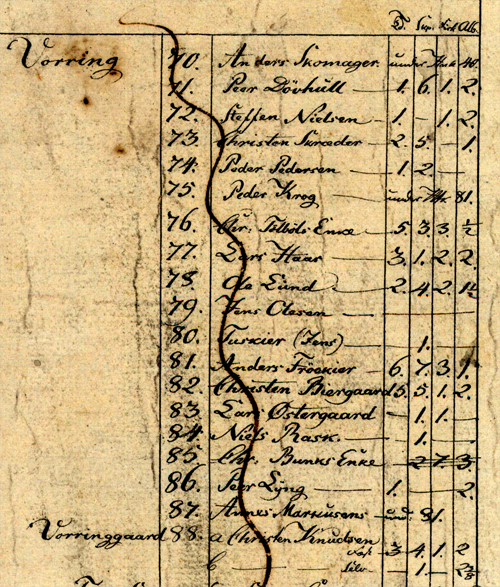 T. Skp. Frk Alb.
Vorring 70. Anders Skomager under 40
71. Peer Dövhull 1. 6. 1. 2.
72. Steffen Nielsen 1. - 1. 2.
73. Christen Skræder 2. 5. - 1.
74. Peder Pedersen 1. 2.
75. Peder Krog under 81.
76. Chr: Enke 5. 3. 3. ½
77. Lars Haar 3. 1. 2. 2.
78. Ole Lund 2. 4. 2. 1½
79. Jens Olesen
80. Tuskier (Jens) 1.
81. Anders Fröekier 6. 7. 3. 1.
82. Christen Biergaard 5. 5. 1. 2.
83. Lars Østergaard - 1. 1.
84. Niels Rask. 1.
85. Chr: Bunks Enke 2. 3.
86. Peer Lyng 1. 2.
87. Annes Markusens und. 81.
Vorringgaard 88. a Christen Knudsen
3 4. 1. 2
b - 1.